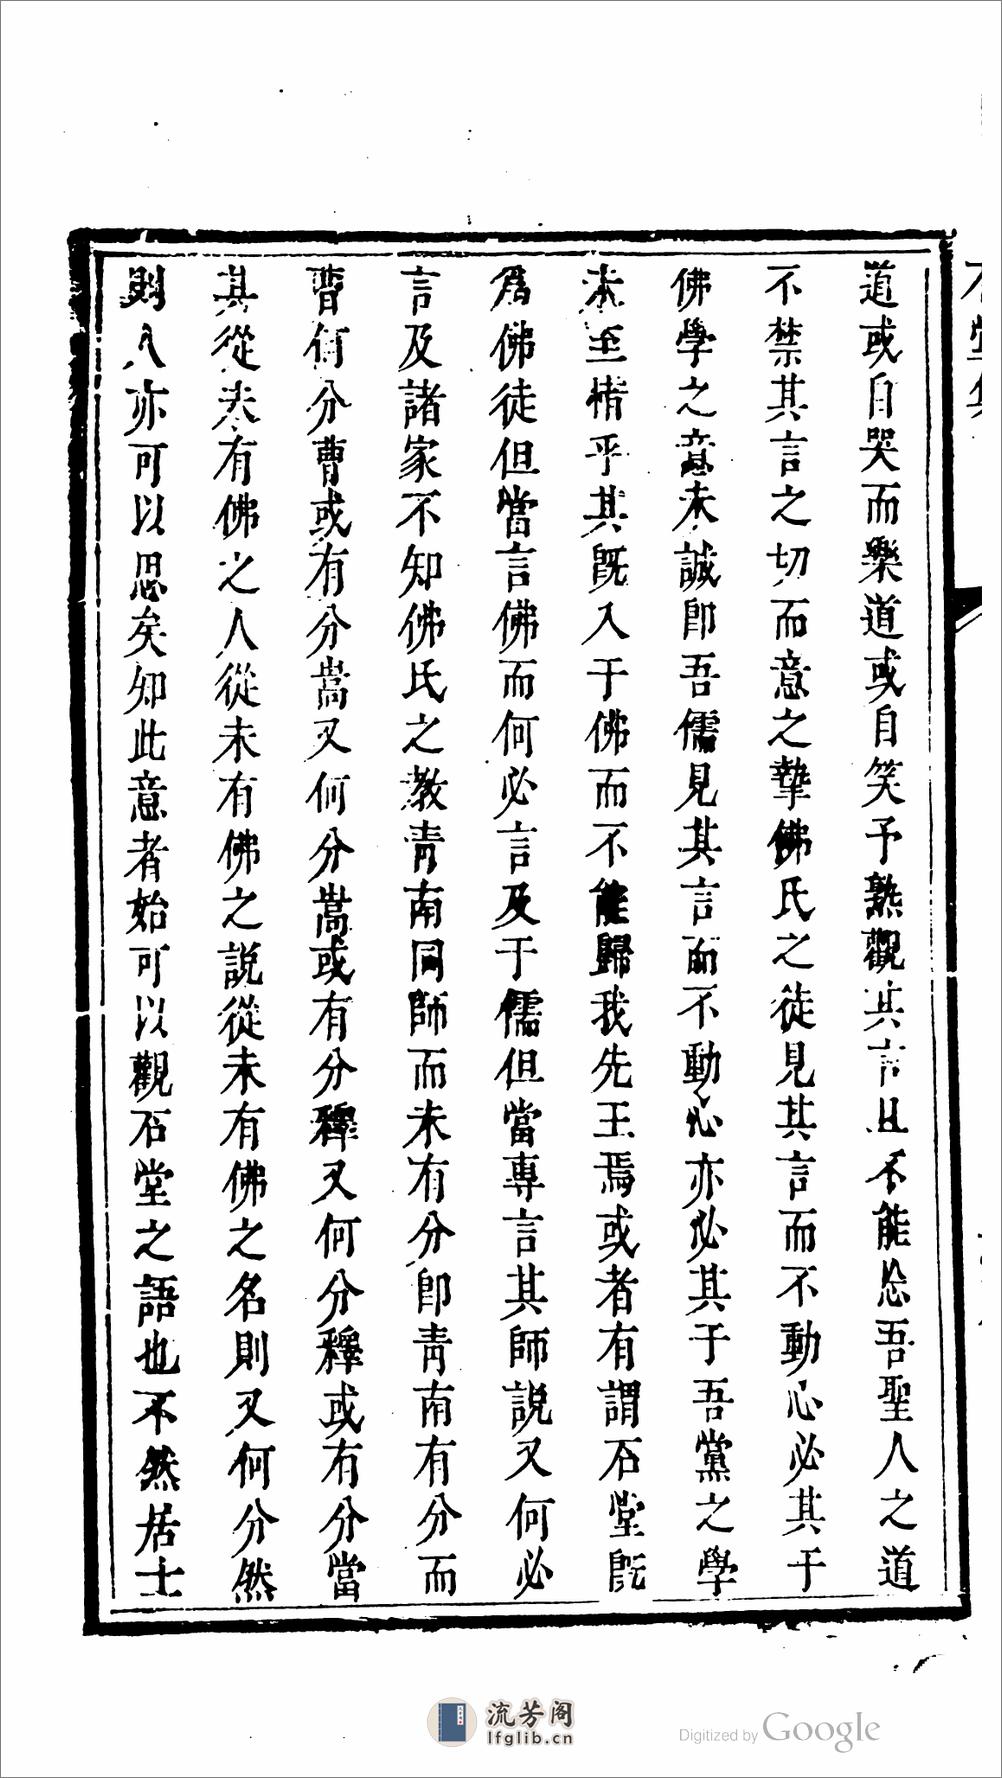 道或自哭而樂道或自笑予熟觀其言且不能忘吾聖人之道
不禁其言之切而意之摯佛氏之徒見其言而不動心必其于
佛學之意未誠卽吾儒見其言而不動心亦必其于吾黨之學
未至惜乎其旣入于佛而不能歸我先王焉或者有謂石堂旣
爲佛徒但當言佛而何必言及于儒但當專言其師說又何必
言及諸家不知佛氏之教青南同師而未有分卽青南有分而
曹何分曹或有分嵩又何分嵩或有分釋又何分釋或有分當
其從未有佛之人從未有佛之說從未有佛之名則又何分然
則人亦可以思矣知此意者始可以觀石堂之語也不然居士
石堂集
流芳阁
lfglib.cn
Digitized by Google